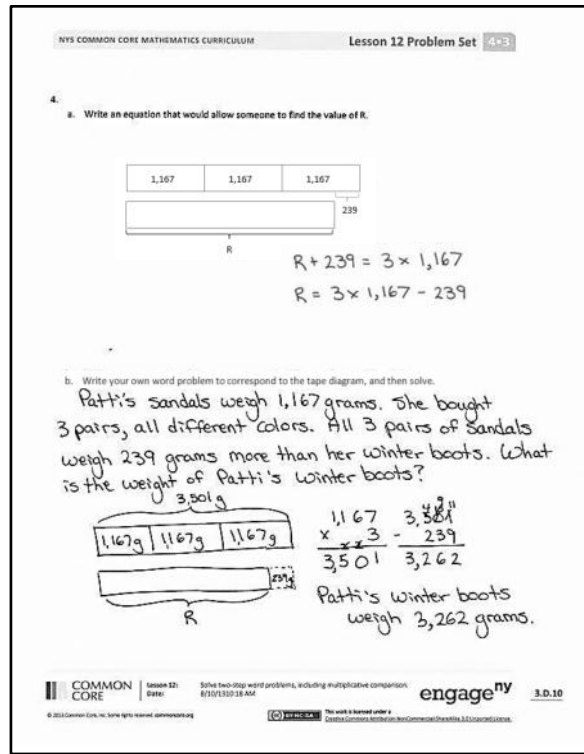 NYS COMMON CORE MATHEMATICS CURRICULUM
Lesson 12 Problem Set 4•3
4.
a. Write an equation that would allow someone to find the value of R.
1,167 1,167 1,167
239
R
R + 239 = 3 × 1,167
R = 3 × 1,167 - 239
b. Write your own word problem to correspond to the tape diagram, and then solve.
Patti's sandals weigh 1,167 grams. She bought
3 pairs, all different colors. All 3 pairs of sandals
weigh 239 grams more than her winter boots. What
is the weight of Patti's winter boots?
3,501 g
1,167g 1,167g 1,167g
239g
R
1,167
× 3
3,501
3,501
- 239
3,262
Patti's winter boots
weigh 3,262 grams.
COMMON
CORE
Lesson 12:
Date:
Solve two-step word problems, including multiplicative comparison.
8/10/13 10:18 AM
engage ny
3.D.10
© 2013 Common Core, Inc. Some rights reserved. commoncore.org
This work is licensed under a
Creative Commons Attribution-NonCommercial-ShareAlike 3.0 Unported License.